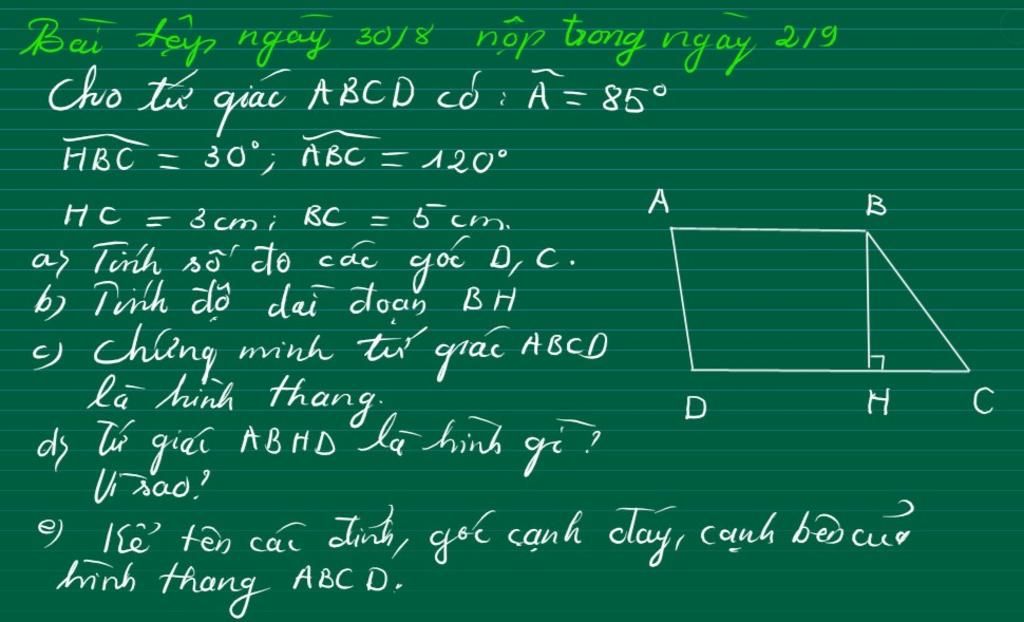 Bài tập ngày 30/8 nộp trong ngày 2/9
Cho tứ giác ABCD có: Â = 85°
HBC = 30°; ABC = 120°
HC = 3cm; BC = 5cm.
a) Tính số đo các góc D, C.
b) Tính độ dài đoạn BH
c) Chứng minh tứ giác ABCD
là hình thang.
d) Tứ giác ABHD là hình gì?
Vì sao?
e) Kể tên các đỉnh, góc cạnh đáy, cạnh bên của
hình thang ABCD.
A B
D H C